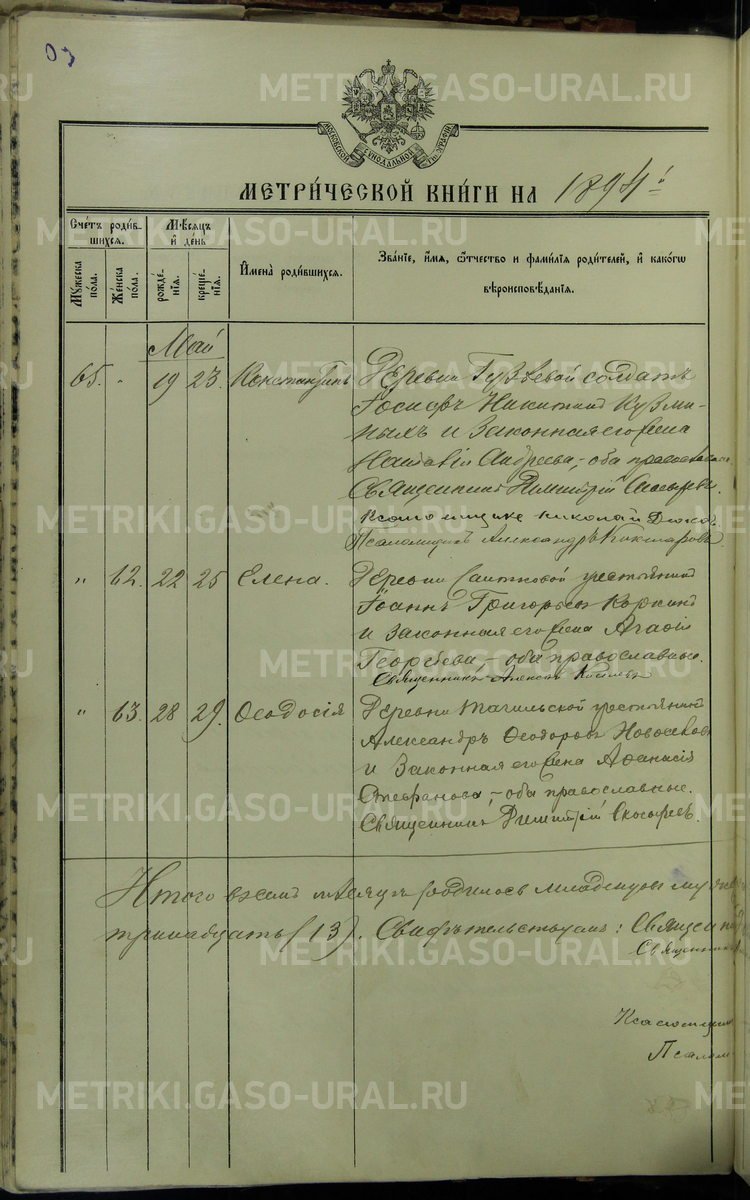 03
МОСКОВСКОЙ СѴНОДАЛЬНОЙ ТИПОГРАФІИ
МЕТРИ́ЧЕСКОЙ КНИ́ГИ НА 1894 й
Счéтъ роди́вшихся.
Мужеска по́ла.
Же́нска по́ла.
Мѣсяцъ и́ де́нь
рожде́нїя.
креще́нїя.
И҆мена̀ роди́вшихся.
Зва́нїе, и҆́мѧ, ѻ҆́тчество и фами́лїя роди́телей, и҆ како́гѡ
вѣроисповѣ́данїя.
Май
65. " 19 23. Константинъ
Деревни Гуз̾евой солдатъ
Іосифъ Никитинъ Кузми-
ныхъ и законная его жена
Наталія Андреева, - оба православные.
Священникъ Димитрій Скосыревъ.
николай
Псаломщикъ Александръ Кокшаровъ
" 62. 22 25 Елена.
Деревни крестьянинъ
Іоаннъ Григорьевъ Коркинъ
и законная его жена Агафія
Георгіева, - оба православные.
Священникъ Алексѣй
" 63. 28 29. Ѳеодосія
Деревни Тагильской крестьянинъ
Александръ Ѳеодоровъ Новоселовъ
и законная его жена Афанасія
Стефанова, - оба православные.
Священникъ Димитрій Скосыревъ.
Итого въ семъ мѣсяцѣ родилось младенцовъ
тринадцать (13). Свидѣтельствуемъ: Священ
Священникъ
Псалом
METRIKI.GASO-URAL.RU